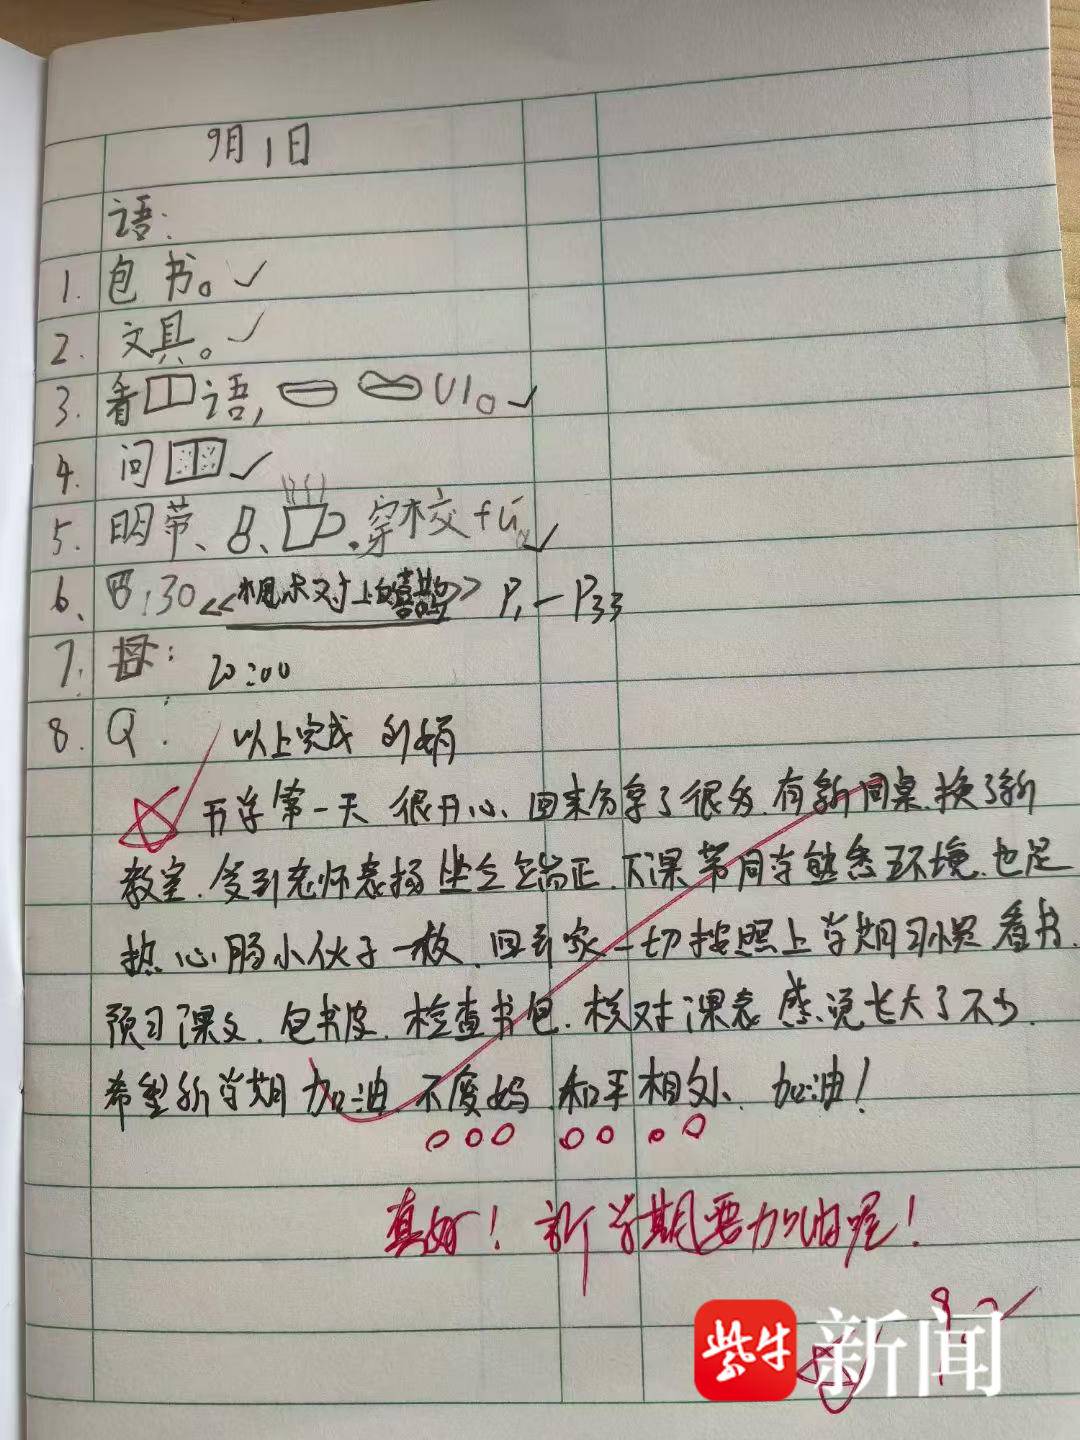 9月1日
语:
1. 包书。
2. 文具。
3. 看语, U1。
4. 问
5. 明带、穿校fú。
6. 30 《枫树上的喜鹊》 P1—P33
7. 20:00
8. Q: 以上完成
开学第一天 很开心. 回来分享了很多. 有新同桌. 换了新
教室. 受到老师表扬 坐立端正. 下课带同学熟悉环境. 也是
热心肠小伙子一枚. 回到家一切按照上学期习惯 看书.
预习课文. 包书皮. 检查书包. 核对课表 感觉长大了不少.
希望新学期加油 不废妈 和平相处. 加油!
真好! 新学期要加油呢!
紫牛新闻